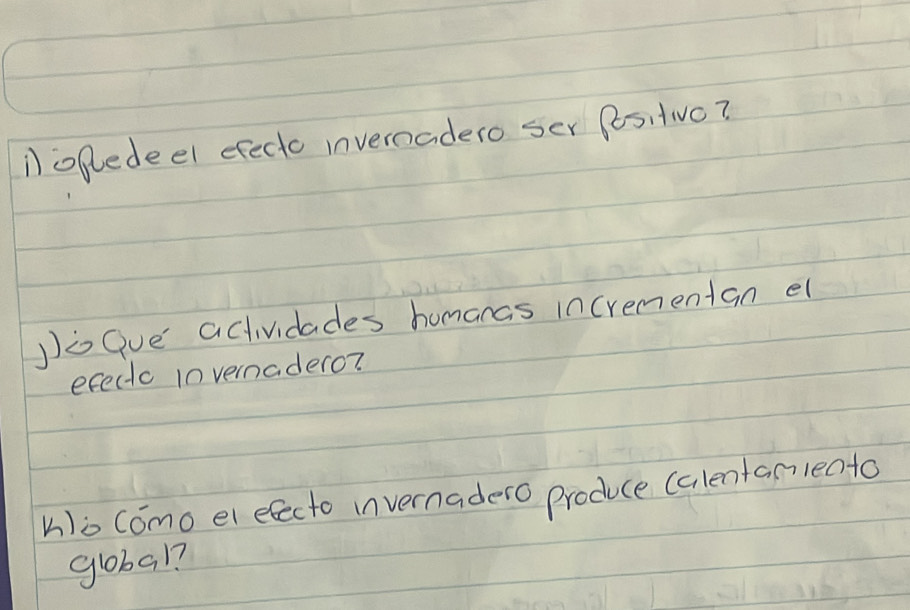 i) ¿Puede el efecto invernadero ser Positivo?
j) ¿Qué actividades humanas incrementan el
efecto invernadero?
k) ¿Cómo el efecto invernadero produce calentamiento
global?